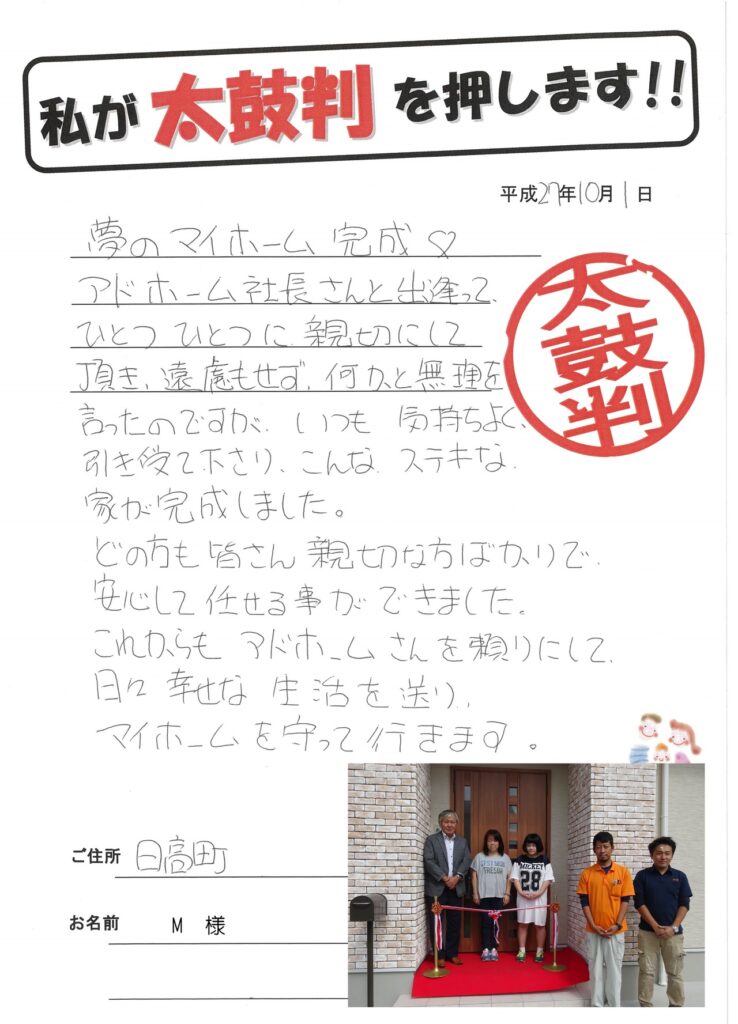 私が太鼓判を押します!!
平成27年10月1日
夢のマイホーム 完成♡
アドホーム社長さんと出逢って、
ひとつひとつに親切にして
頂き、遠慮もせず、何かと無理を
言ったのですが、いつも 気持ちよく、
引き受て下さり、こんな ステキな
家が完成しました。
どの方も皆さん親切な方ばかりで、
安心して任せる事ができました。
これからも アドホームさんを頼りにして、
日々幸せな 生活を送り、
マイホームを守って行きます。
太鼓判
ご住所 日高町
お名前 M 様
MICKEY
28